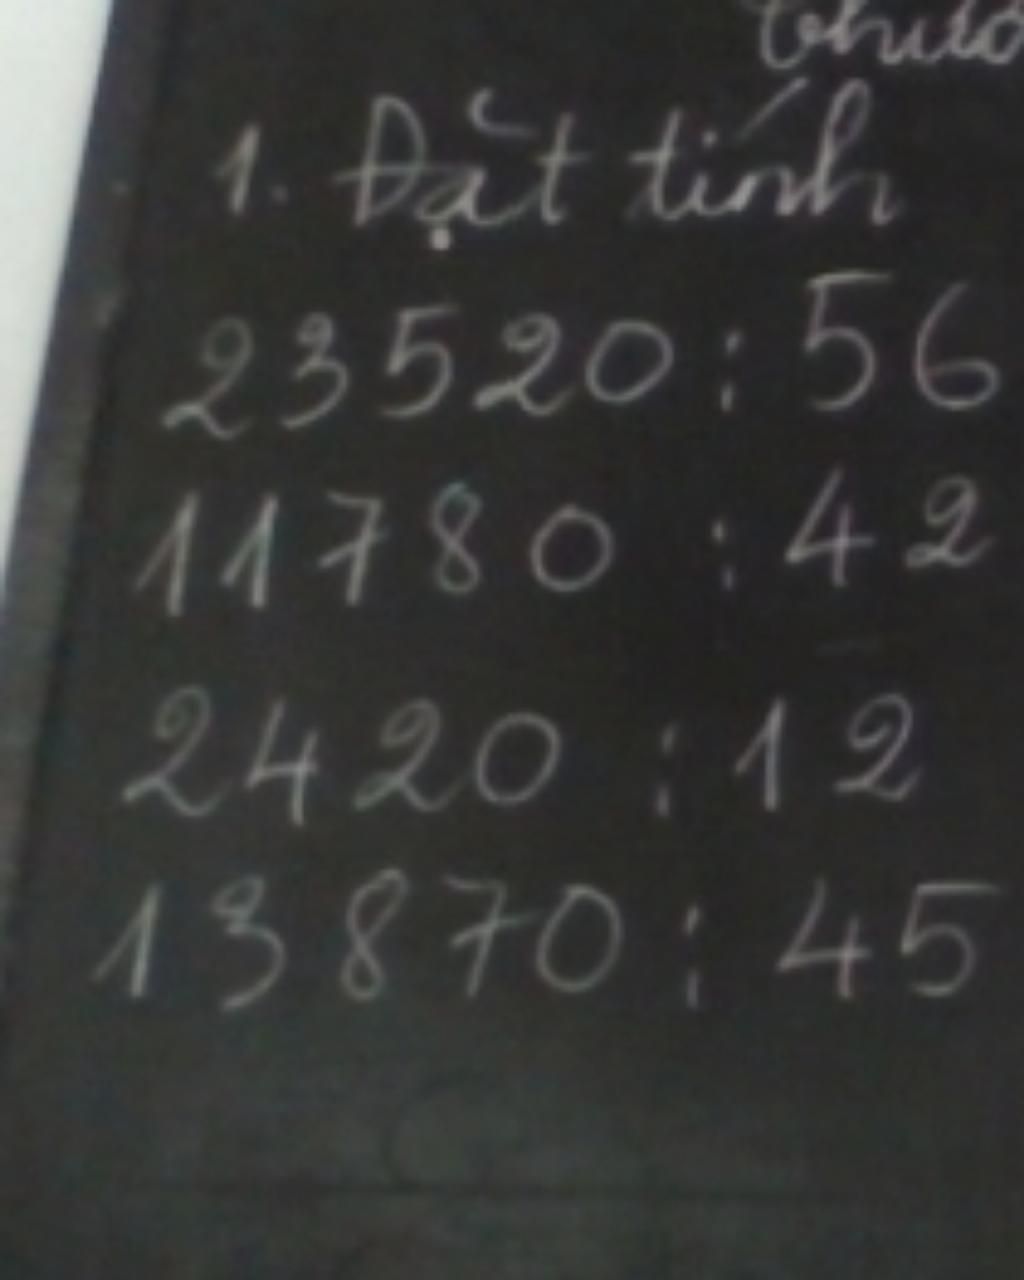 1. Đặt tính
23520 : 56
11780 : 42
2420 : 12
13870 : 45